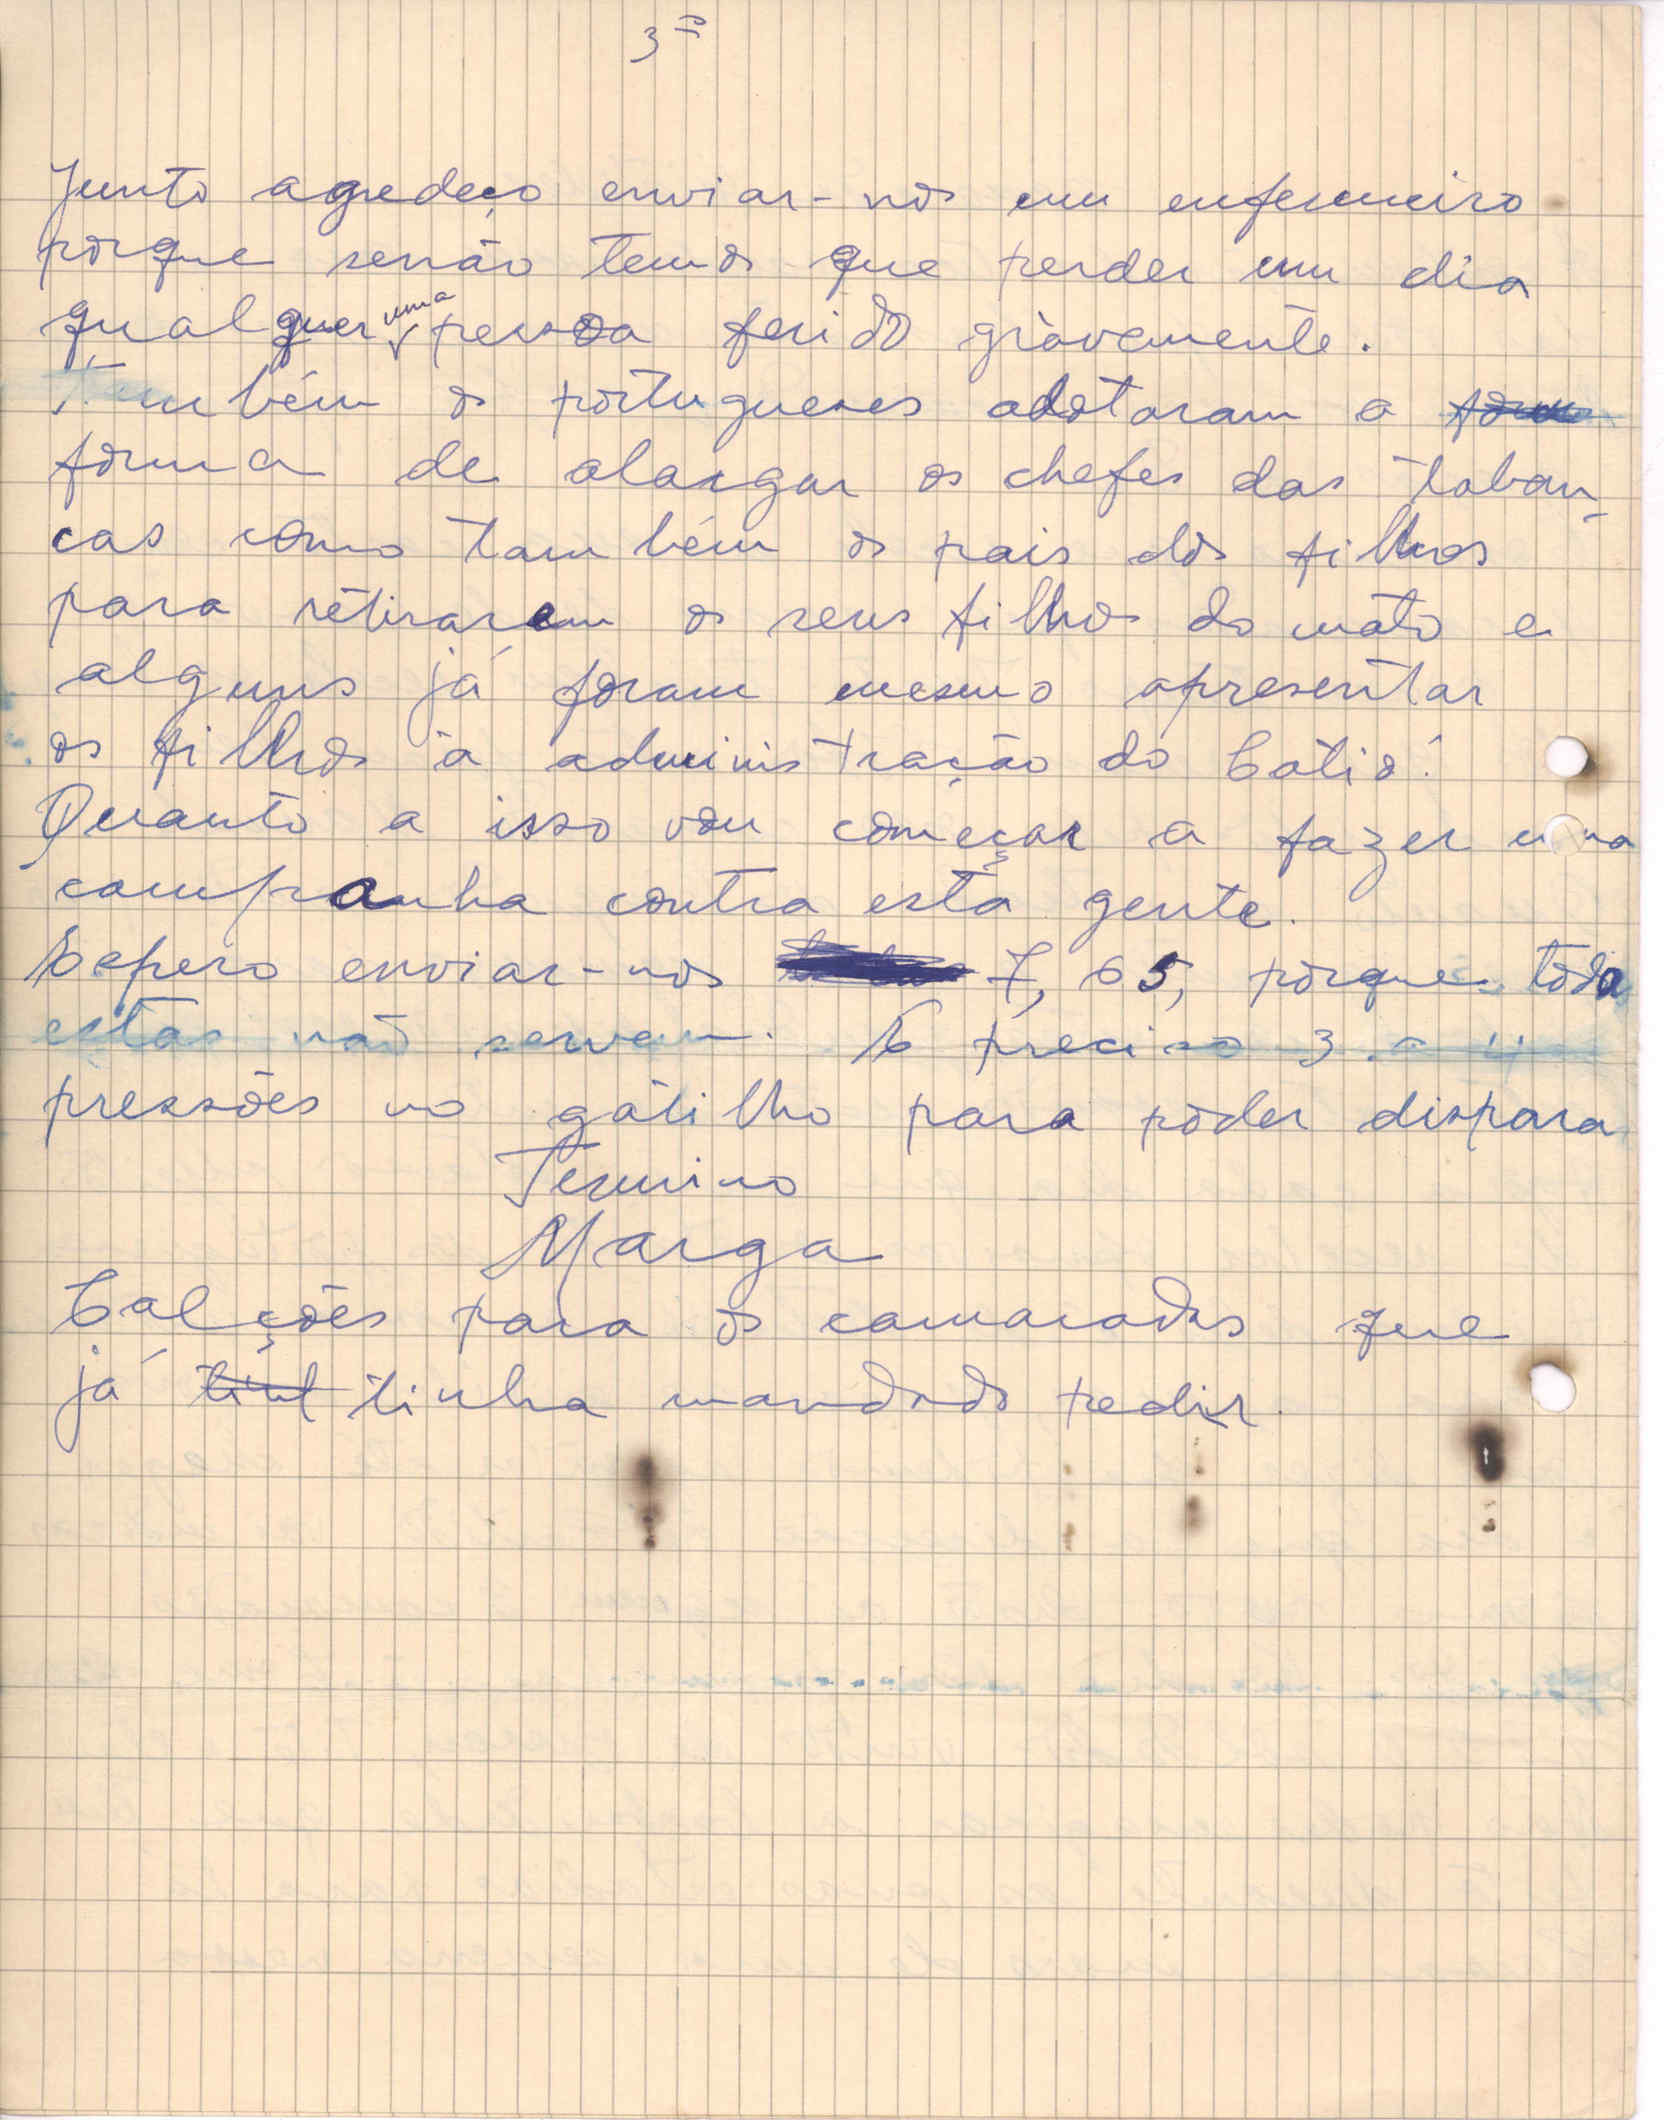 3º
Junto agredeço enviar-nos um enfermeiro
porque senão temos que perder um dia
qualquer uma pessoa ferido gràvemente.
Também os portugueses adotaram a form
forma de alargar os chefes das taban-
cas como também os pais dos filhos
para retirarem os seus filhos do mato e
alguns já foram mesmo apresentar
os filhos à administração do Catió.
Quanto a isso vou começar a fazer uma
campanha contra esta gente.
Espero enviar-nos 7,65, porque toda
estas não servem. É preciso 3 a 4
pressões no gatilho para poder dispara
Termino
Marga
Calções para os camaradas que
já tinh tinha mandado pedir.